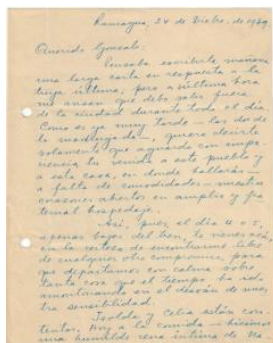 Rancagua, 24 de Dicbre. de 1939.
Querido Gonzalo:
Pensaba escribirte mañana
una larga carta en respuesta a la
tuya última, pero a última hora
me avisan que debo salir fuera
de la ciudad durante todo el día.
Como es ya muy tarde — las dos de
la madrugada — quiero decirte
solamente que aguardo con impa-
ciencia tu venida a este pueblo y
a esta casa, en donde hallarás —
a falta de comodidades — nuestros
corazones abiertos en amplio y fra
ternal hospedaje.
Así, pues, el día 4 o 5,
apenas bajes del tren, te vienes acá,
en la certeza de encontrarme libre
de cualquier otro compromiso, para
que departamos con calma sobre
tanta cosa que el tiempo ha ido
amontonando en el desván de nues
tra sensibilidad.
Isolda y Celia están con-
tentas. Hoy, a la comida — hicimos
una humilde cena íntima de Na